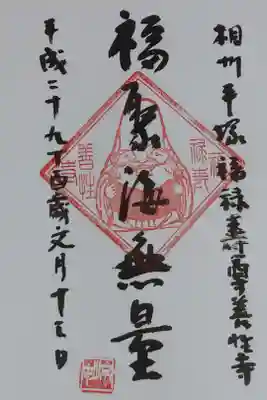 相州平塚福禄寿尊善性寺
福聚海無量
平成二十九丁酉歳文月十三日
善性